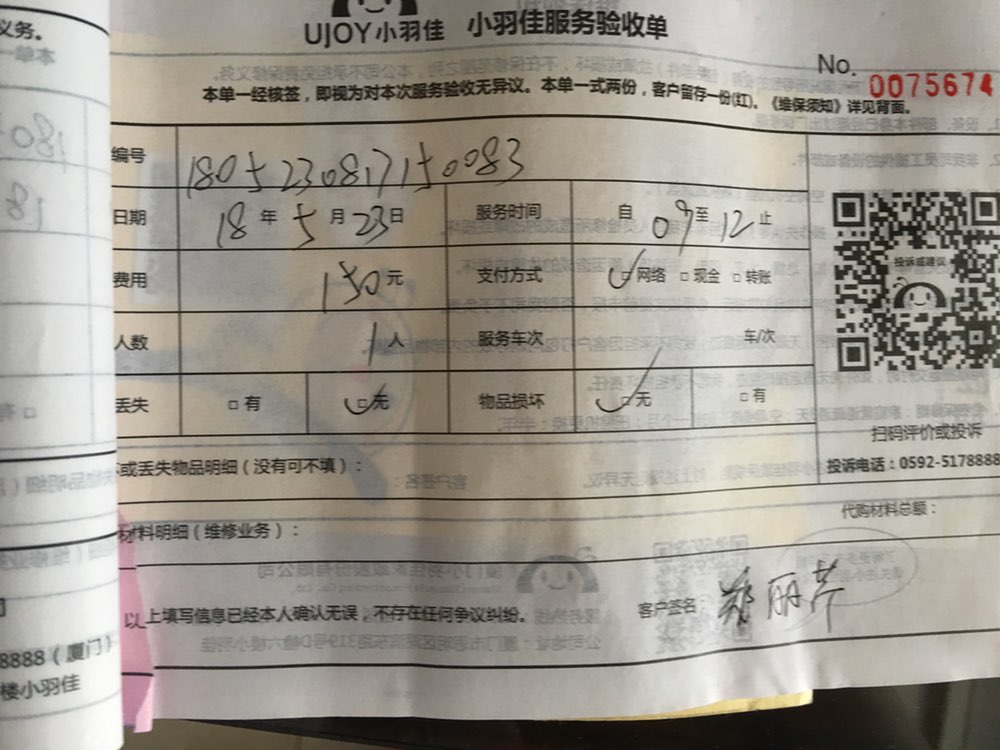 UJOY小羽佳 小羽佳服务验收单
No. 0075674
本单一经核签，即视为对本次服务验收无异议。本单一式两份，客户留存一份(红)。《维保须知》详见背面。
编号 1805230817150083
日期 18 年 5 月 23 日 服务时间 自 09 至 12 止
费用 150 元 支付方式 网络 现金 转账
投诉或建议
人数 1 人 服务车次 / 车/次
丢失 有 无 物品损坏 无 有
扫码评价或投诉
投诉电话：0592-5178888
坏或丢失物品明细（没有可不填）：
代购材料总额：
材料明细（维修业务）：
以上填写信息已经本人确认无误，不存在任何争议纠纷。 客户签名： 郑丽芹
义务。
8888（厦门）
楼小羽佳